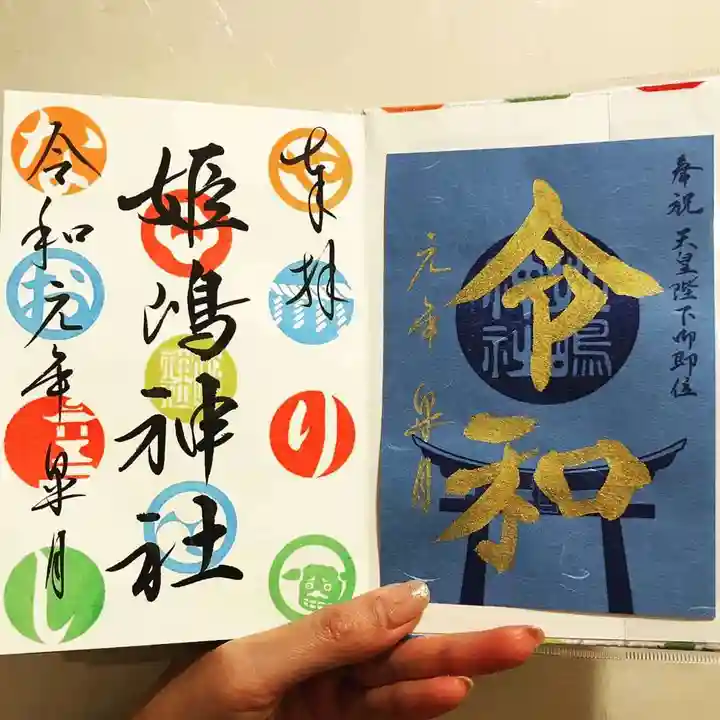 奉拝
姫嶋神社
令和元年皐月
や
り
な
お
し
奉祝 天皇陛下御即位
令和
元年 皐月
姫嶋神社